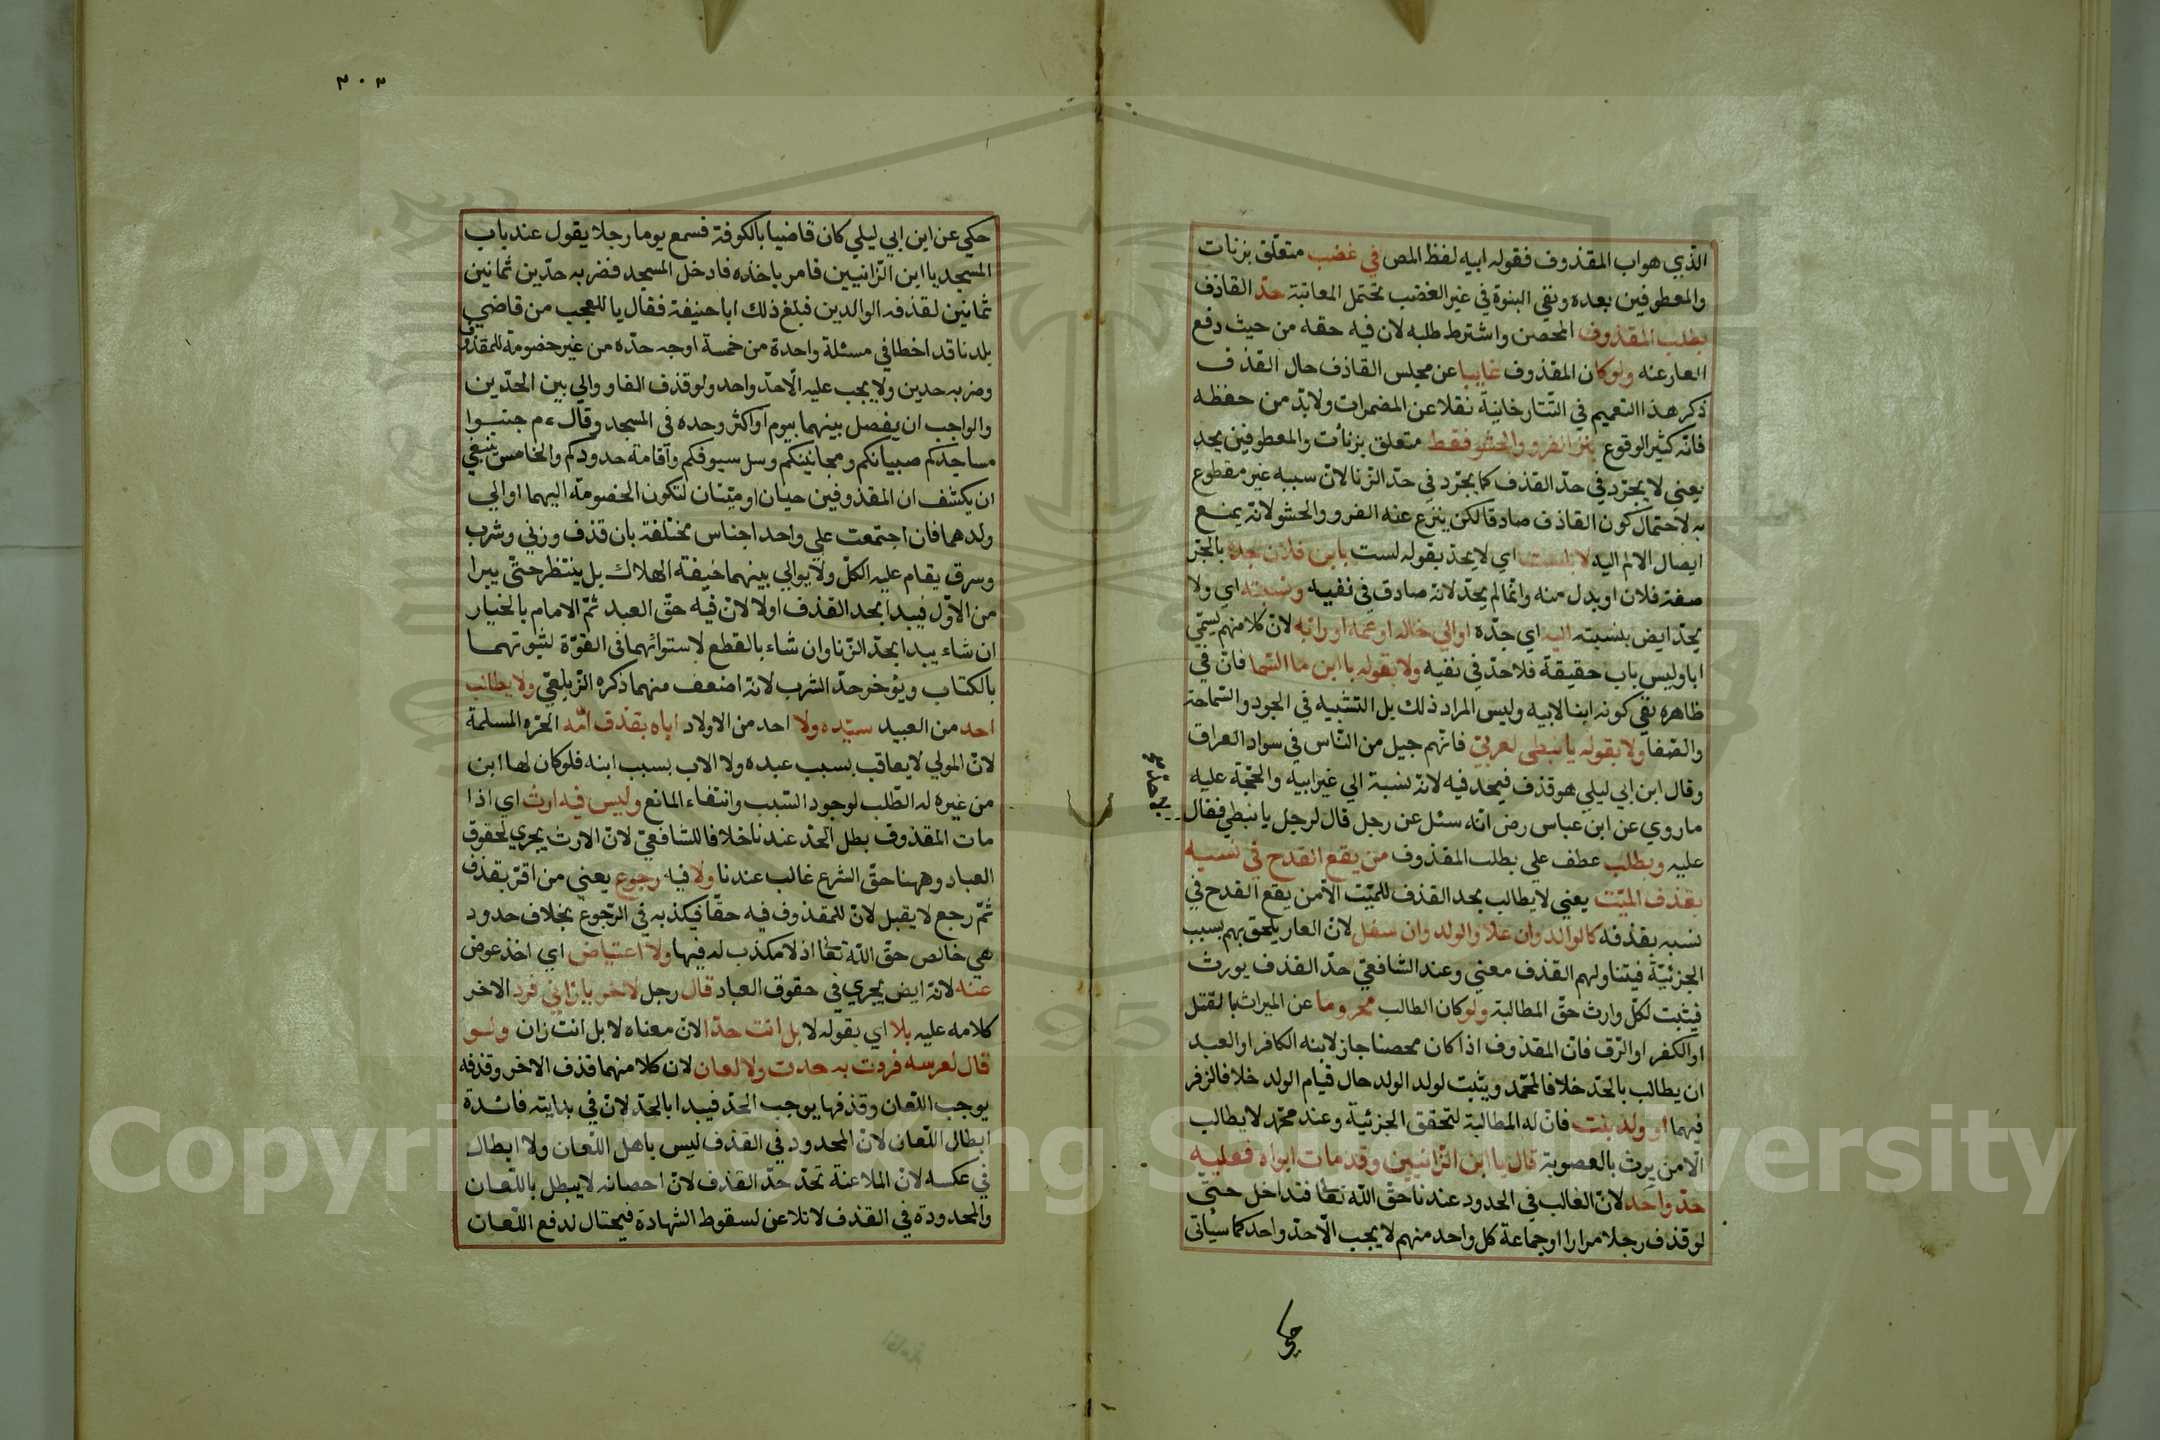 الذي هو اب المقذوف فقوله ابيه لفظ المص في غضب متعلق بزنات
والمعطوفين بعده ونفي البنوة في غير الغضب يحتمل المعاتبة حدّ القاذف
بطلب المقذوف المحصن واشترط طلبه لان فيه حقه من حيث دفع
العار عنه ولو كان المقذوف غايبا عن مجلس القاذف حال القذف
ذكر هذا التعميم في التتارخانية نقلا عن المضمرات ولا بدّ من حفظه
فانّه كثير الوقوع بنزع الفرو والحشو فقط متعلق بزنات والمعطوفين يحد
يعني لا يجرّد في حدّ القذف كما يجرّد في حدّ الزنا لانّ سببه غير مقطوع
به لاحتمال كون القاذف صادقا لكن ينزع عنه الفرو والحشو لانّه يمنع
ايصال الالم اليه لا بلست اي لا يحد بقوله لست بابن فلان جده بالجرّ
صفة فلان او بدل منه وانّما لم يحدّ لانّه صادق في نفيه ونسبته اي ولا
يحدّ ايض بنسبته اليه اي جدّه او الي خاله او عمه او رابّه لانّ كلا منهم يسمّي
ابا وليس باب حقيقة فلا حدّ في نفيه ولا بقوله يا ابن ماء السّما فانّ في
ظاهره نفي كونه ابنا لابيه وليس المراد ذلك بل التشبيه في الجود والسّماحة
والصّفا ولا بقوله يا نبطي لعربيّ فانّهم جيل من النّاس في سواد العراق
وقال ابن ابي ليلي هو قذف فيحد فيه لانّه نسبة الي غير ابيه والحجّة عليه
ما روي عن ابن عباس رض انّه سئل عن رجل قال لرجل يا نبطي فقال لا حدّ
عليه ويطلب عطف علي بطلب المقذوف من يقع القدح في نسبه
بقذف الميّت يعني لا يطالب بحد القذف للميّت الّا من يقع القدح في
نسبه بقذفه كالوالد وان علا والولد وان سفل لانّ العار يلحق بهم بسبب
الجزئيّة فيتناولهم القذف معني وعند الشافعيّ حدّ القذف يورث
فيثبت لكلّ وارث حقّ المطالبة ولو كان الطالب محروما عن الميراث بالقتل
او الكفر او الرّق فانّ المقذوف اذا كان محصنا جاز لابنه الكافر او العبد
ان يطالب بالحدّ خلافا لمحمّد ويثبت لولد الولد حال قيام الولد خلافا لزفر
فيهما او ولد بنت فانّ له المطالبة لتحقق الجزئية وعند محمّد لا يطالب
الّا من يرث بالعصوبة قال يا ابن الزّانيين وقد مات ابواه فعليه
حدّ واحد لانّ الغالب في الحدود عندنا حقّ الله تعا فتداخل حتّي
لو قذف رجلا مرارا او جماعة كل واحد منهم لا يجب الّا حدّ واحد كما سيأتي
حكي
٣٠٣
حكي عن ابن ابي ليلي كان قاضيا بالكوفة فسمع يوما رجلا يقول عند باب
المسجد يا ابن الزّانيين فامر باخذه فادخل المسجد فضربه حدّين ثمانين
ثمانين لقذفه الوالدين فبلغ ذلك ابا حنيفة فقال يا للعجب من قاضي
بلدنا قد اخطا في مسئلة واحدة من خمسة اوجه حدّه من غير خصومة للمقذوف
وضربه حدين ولا يجب عليه الّا حدّ واحد ولو قذف الفا ووالي بين الحدّين
والواجب ان يفصل بينهما بيوم او اكثر وحده في المسجد وقال ءم جنبوا
مساجدكم صبيانكم ومجانينكم وسل سيوفكم واقامة حدودكم والخامس ينبغي
ان يكشف ان المقذوفين حيان او ميّتان لتكون الخصومة اليهما او الي
ولدهما فان اجتمعت علي واحد اجناس مختلفة بان قذف وزني وشرب
وسرق يقام عليه الكلّ ولا يوالي بينهما خيفة الهلاك بل ينتظر حتّي يبرا
من الاوّل فيبدا بحد القذف اولا لانّ فيه حقّ العبد ثمّ الامام بالخيار
ان شاء يبدا بحدّ الزّنا وان شاء بالقطع لاستوائهما في القوّة لثبوتهما
بالكتاب ويؤخر حدّ الشرب لانّه اضعف منهما ذكره الزّيلعيّ ولا يطالب
احد من العبيد سيّده ولا احد من الاولاد اباه بقذف امّه الحرّه المسلمة
لانّ المولي لا يعاقب بسبب عبده ولا الاب بسبب ابنه فلو كان لها ابن
من غيره له الطّلب لوجود السّبب وانتفاء المانع وليس فيه ارث اي اذا
مات المقذوف بطل الحدّ عندنا خلافا للشافعيّ لانّ الارث يجري لحقوق
العباد وههنا حقّ الشرع غالب عندنا ولا فيه رجوع يعني من اقرّ بقذف
ثمّ رجع لا يقبل لانّ للمقذوف فيه حقّا فيكذبه في الرّجوع بخلاف حدود
هي خالص حقّ الله تعا اذ لا مكذب له فيها ولا اعتياض اي اخذ عوض
عنه لانّه ايض يجري في حقوق العباد قال رجل لاخر يا زاني فردّ الاخر
كلامه عليه بلا اي بقوله لا بل انت حدّا لانّ معناه لا بل انت زان ولو
قال لعرسه فردت به حدت ولا لعان لان كلا منهما قذف الاخر وقذفه
يوجب اللّعان وقذفها يوجب الحدّ فيبدا بالحدّ لانّ في بدايته فائدة
ابطال اللّعان لانّ المحدود في القذف ليس باهل اللّعان ولا ابطال
في عكسه لانّ الملاعنة تحدّ حدّ القذف لانّ احصانه لا يبطل باللّعان
والمحدودة في القذف لا تلاعن لسقوط الشهادة فيحتال لدفع اللّعان
Copyright © King Saud University